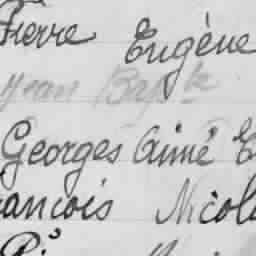 Pierre Eugène
Jean Bapte
Georges Aimé E
ancois Nicol